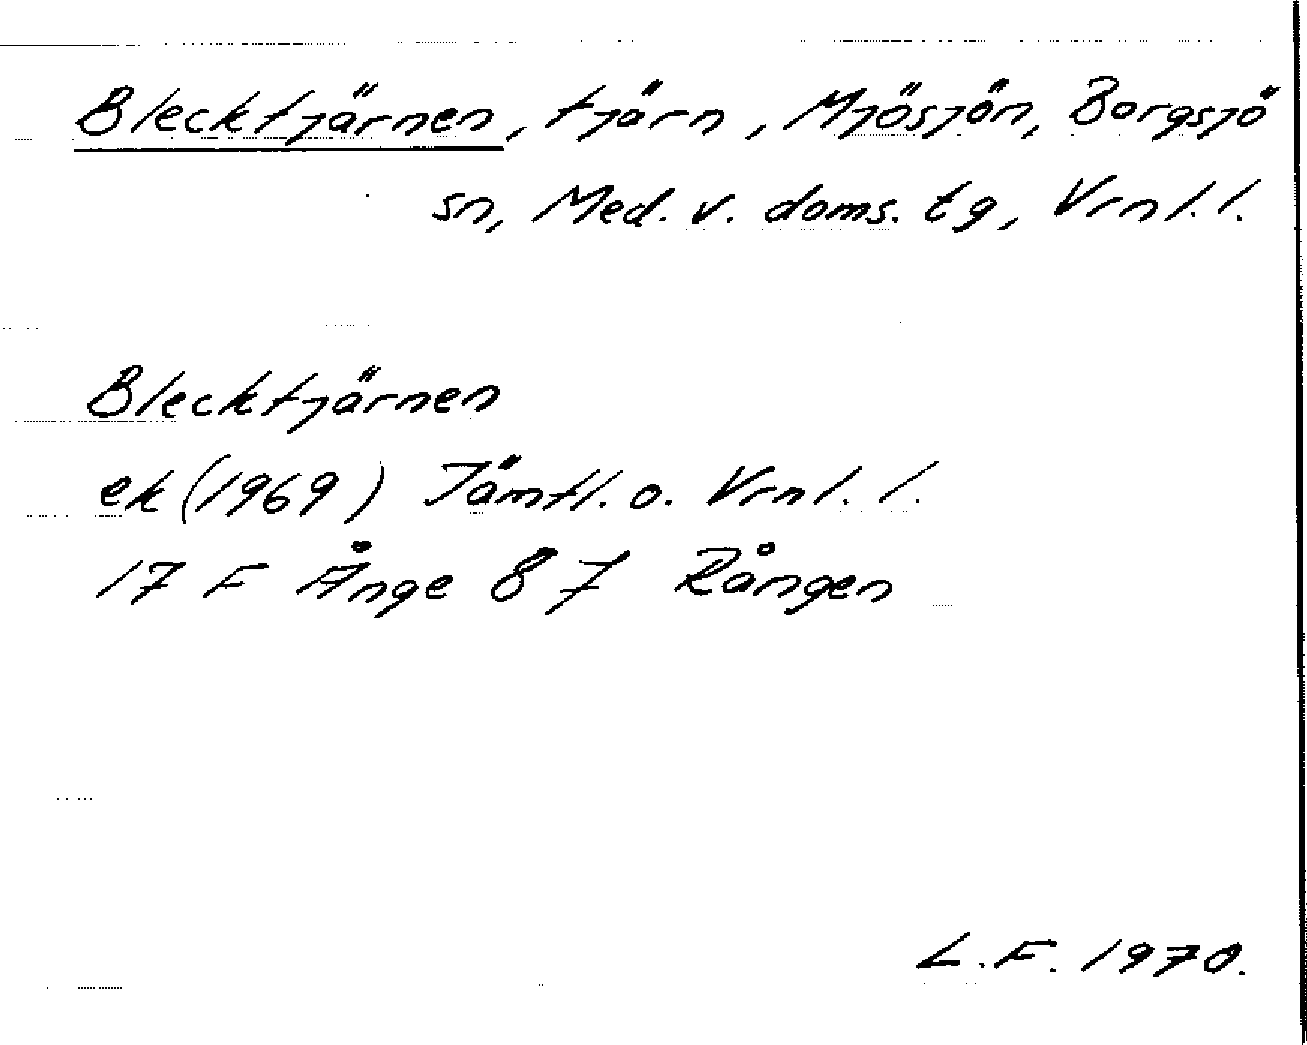 Blecktjärnen, tjärn, Mjösjön, Borgsjö
sn, Med. v. doms. tg, Vrnl. l.
Blecktjärnen
ek (1969) Jämtl. o. Vrnl. l.
17 F Ånge 8 f Rången
L.F. 1970.